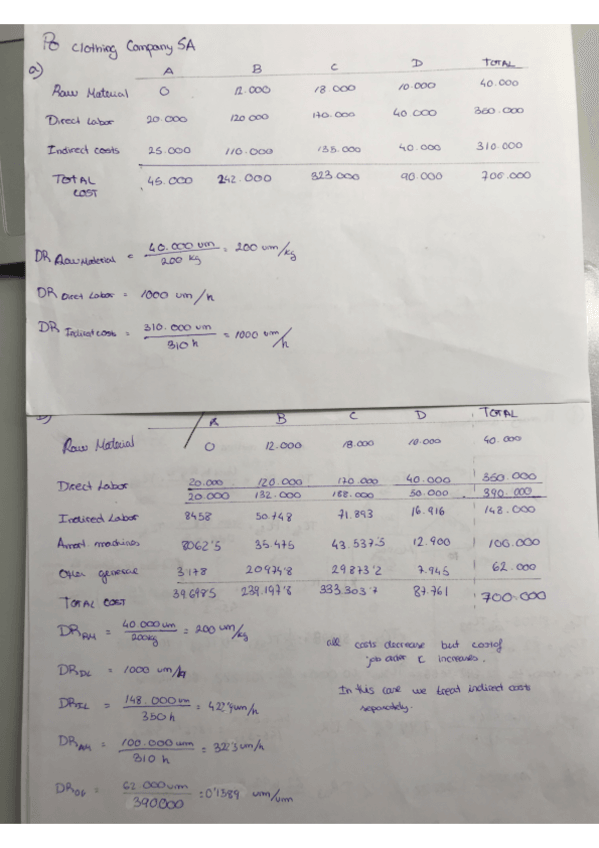 Clothing Company SA
a)
A B C D TOTAL
Raw Material 0 12.000 18.000 10.000 40.000
Direct Labor 20.000 120.000 170.000 40.000 350.000
Indirect costs 25.000 110.000 135.000 40.000 310.000
TOTAL COST 45.000 242.000 323.000 90.000 700.000
DR Raw Material = 40.000 um / 200 kg = 200 um/kg
DR Direct Labor = 1000 um/h
DR Indirect costs = 310.000 um / 310 h = 1000 um/h
b)
A B C D TOTAL
Raw Material 0 12.000 18.000 10.000 40.000
Direct Labor 20.000 120.000 170.000 40.000 350.000
20.000 132.000 188.000 50.000 390.000
Indirect Labor 8458 50.748 71.893 16.916 148.000
Amort machines 8062'5 35.475 43.537'5 12.900 100.000
Other general 3.178 20974'8 29873'2 7.945 62.000
TOTAL COST 39.698'5 239.197'8 333.303'7 87.761 700.000
DR RM = 40.000 um / 200kg = 200 um/kg
DR DL = 1000 um/h
DR IL = 148.000 um / 350 h = 422'9 um/h
DR AM = 100.000 um / 310 h = 322'5 um/h
DR OG = 62.000 um / 390.000 = 0'1589 um/um
all costs decrease but cost of
job order C increases.
In this case we treat indirect costs
separately.